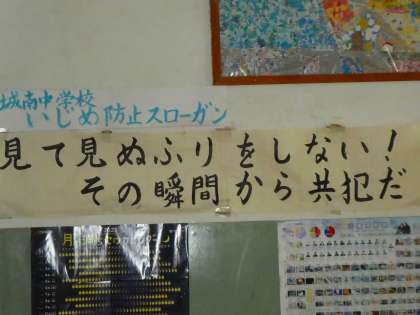 城南中学校
いじめ防止スローガン
見て見ぬふりをしない!
その瞬間から共犯だ